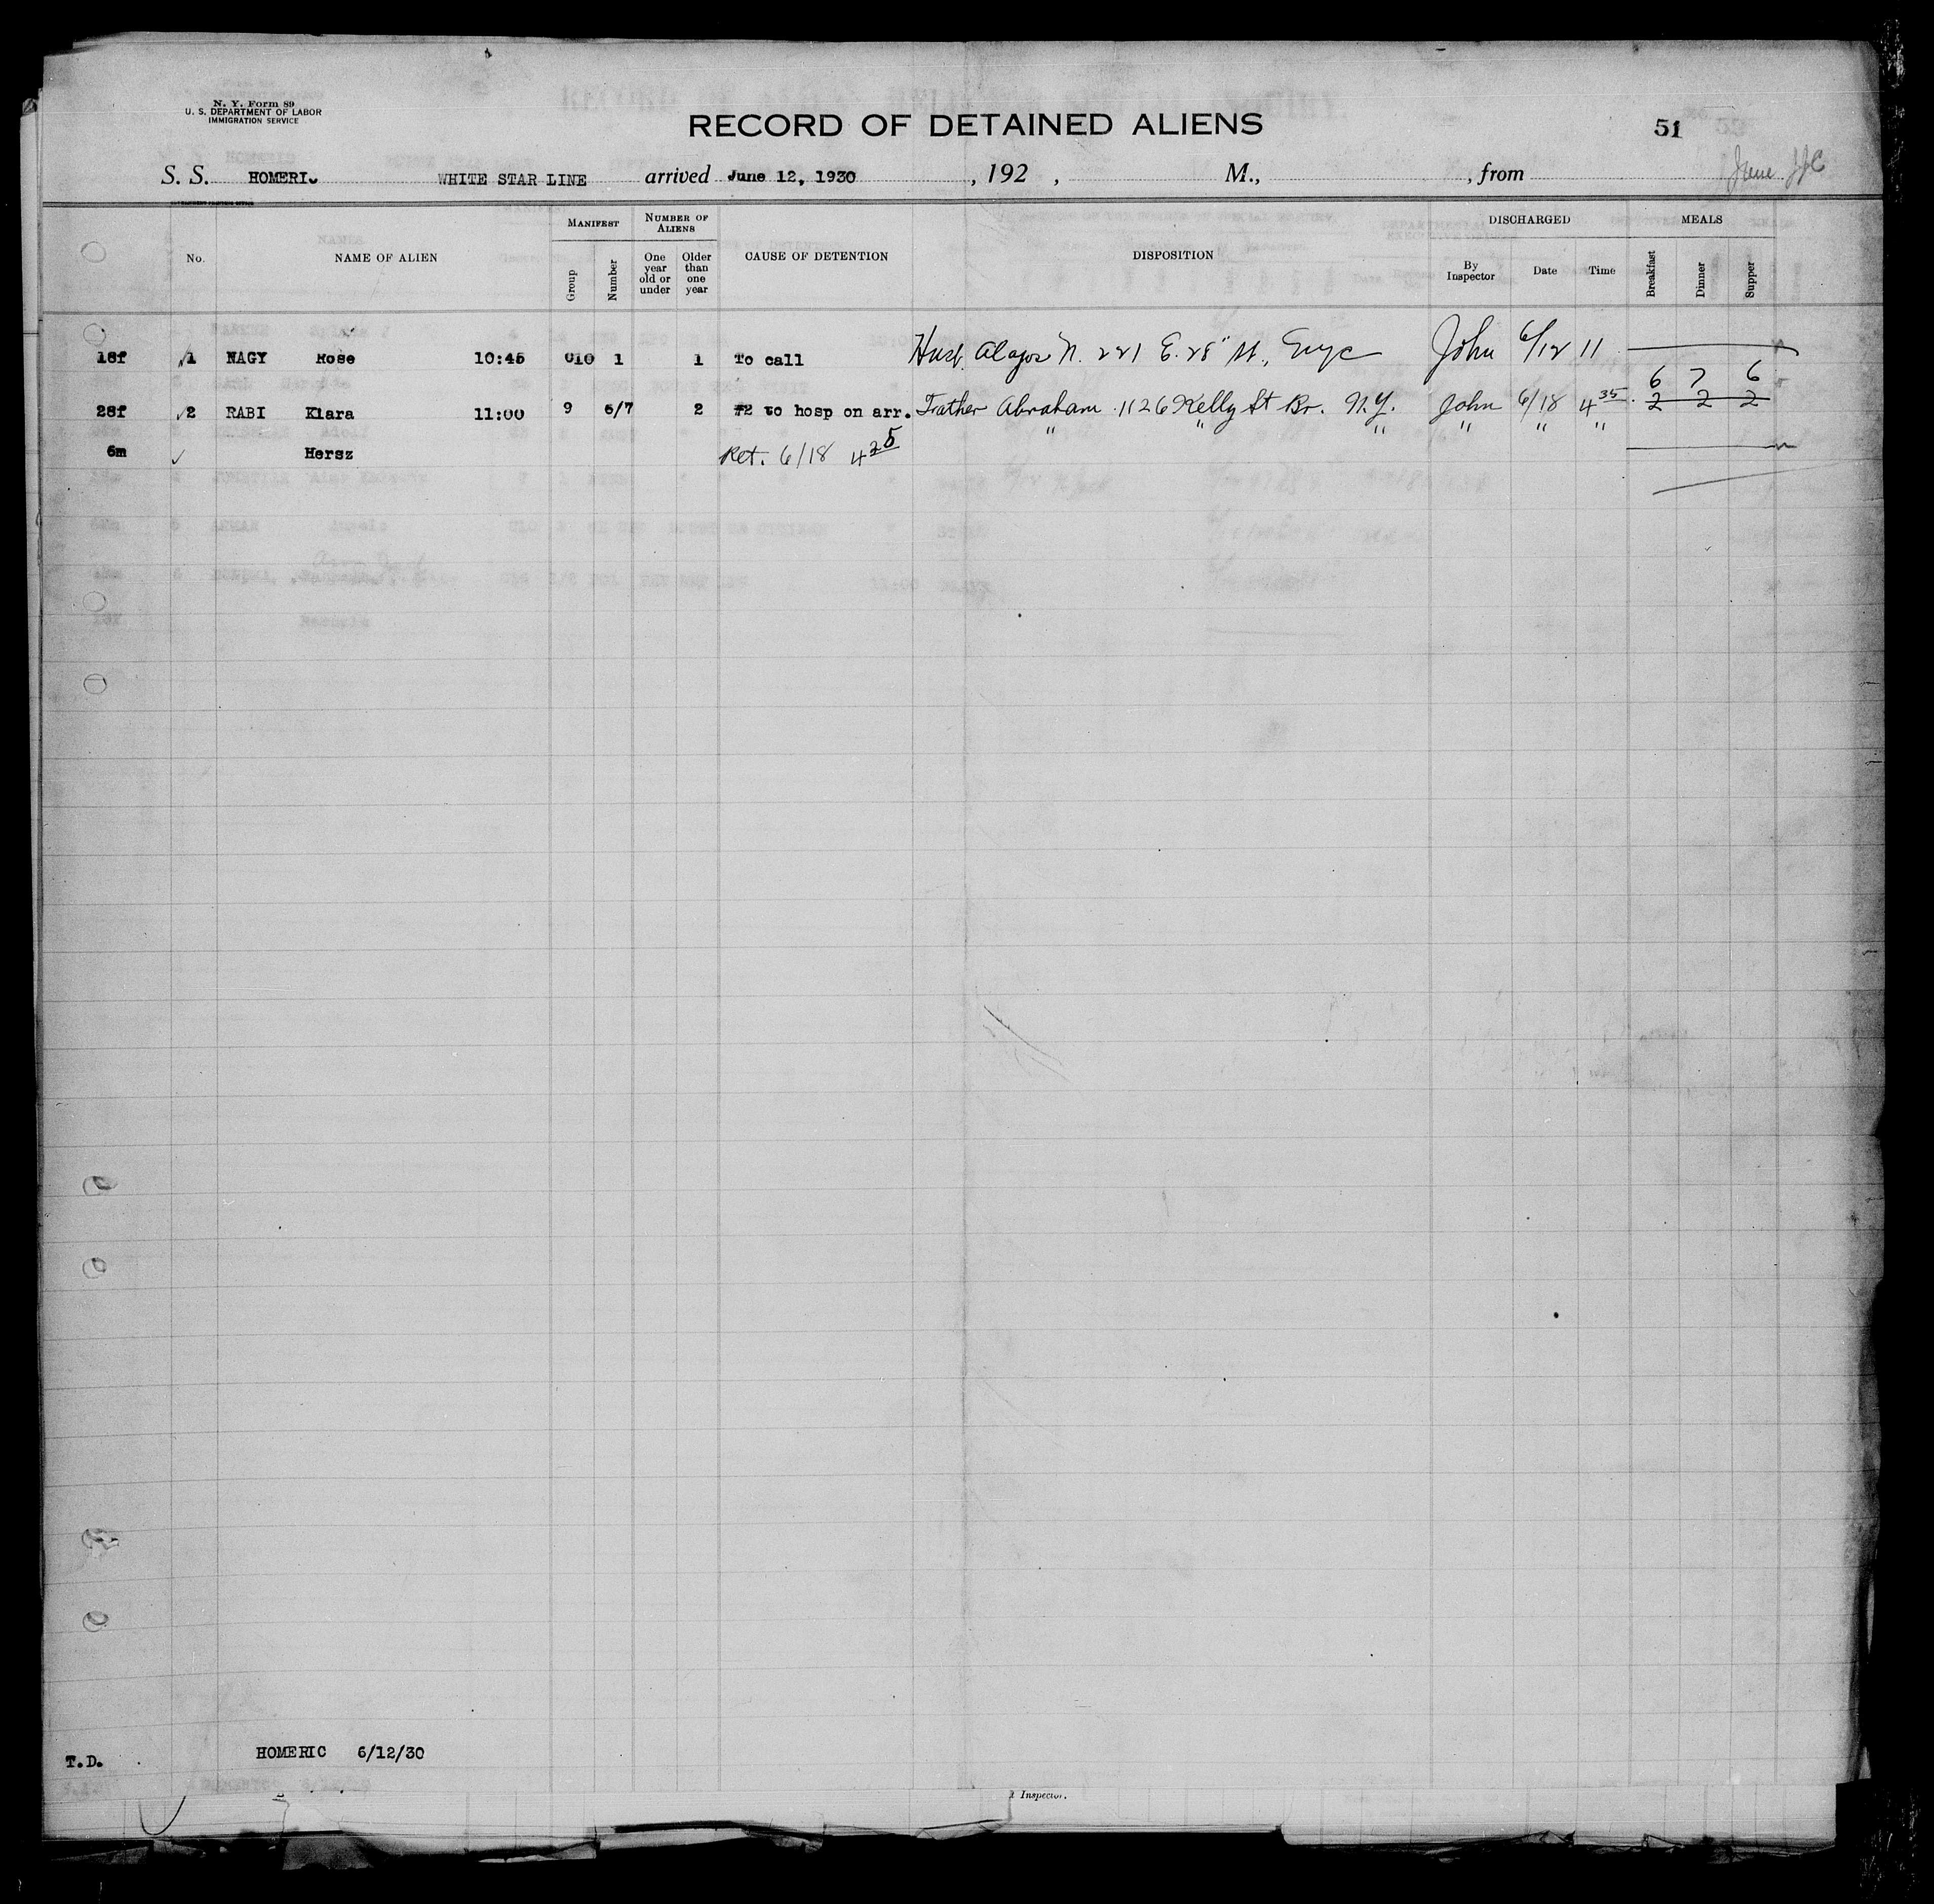 N. Y. Form 89
U. S. DEPARTMENT OF LABOR
IMMIGRATION SERVICE
RECORD OF DETAINED ALIENS
51
S. S. HOMERIC WHITE STAR LINE arrived June 12, 1930 , 192 , M., , from
No. NAME OF ALIEN MANIFEST Group Number NUMBER OF ALIENS One year old or under Older than one year CAUSE OF DETENTION DISPOSITION DISCHARGED By Inspector Date Time MEALS Breakfast Dinner Supper
18f 1 NAGY Rose 10:45 U10 1 1 To call Husb. N. 221 E. 28" St., John 6/12 11
6 7 6
28f 2 RABI Klara 11:00 9 6/7 2 #2 to hosp on arr. Father Abraham 1126 Kelly St Br. N.Y. John 6/18 4 35 2 2 2
6m Hersz Ret. 6/18 4 25 " " " " " "
T.D. HOMERIC 6/12/30
Inspector.